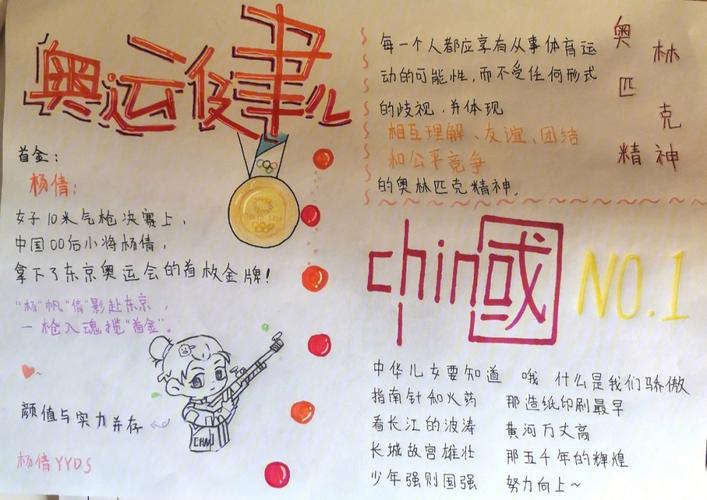 奥运健儿
首金：
杨倩：
女子10米气枪决赛上，
中国00后小将杨倩，
拿下了东京奥运会的首枚金牌！
"杨"帆"倩"影赴东京，
一枪入魂揽"首金"。
颜值与实力并存
CHN
杨倩YYDS
每一个人都应享有从事体育运
动的可能性，而不受任何形式
的歧视，并体现
相互理解、友谊、团结
和公平竞争
的奥林匹克精神。
奥林匹克精神
chin国
NO.1
中华儿女要知道 哦 什么是我们骄傲
指南针和火药 那造纸印刷最早
看长江的波涛 黄河万丈高
长城故宫雄壮 那五千年的辉煌
少年强则国强 努力向上～